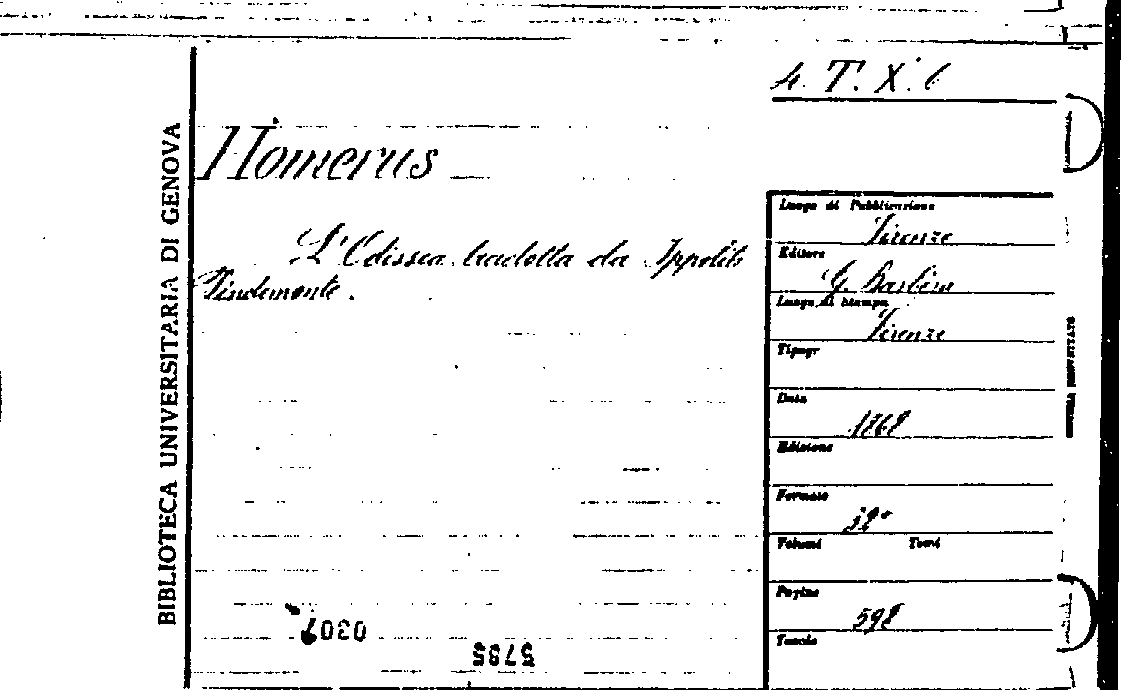 4. T. X. 6
BIBLIOTECA UNIVERSITARIA DI GENOVA
Homerus
L'Odissea tradotta da Ippolito
Pindemonte.
Luogo di Pubblicazione
Firenze
Editore
G. Barbèra
Luogo di Stampa
Firenze
Tipogr
Data
1868
Edizione
Formato
32°
Volumi Tomi
Pagine
598
Tavole
0307